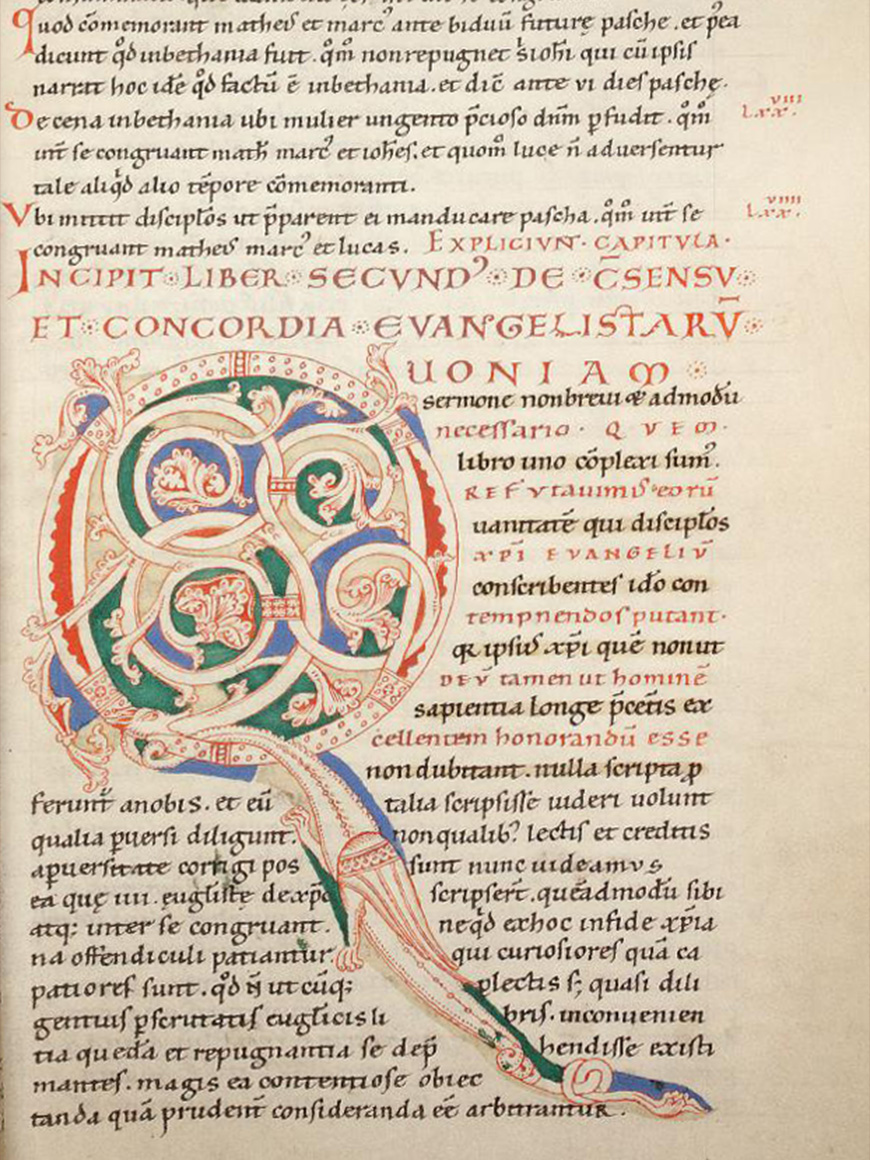 quod cōmemorant matheꝰ et marcꝰ ante biduū futurę pasche. et p̄ea
dicunt qd̄ inbethania fuit. qm̄ nonrepugnet s̄ iohī qui cū ipsis
narrat hoc idē qd̄ factū ē inbethania. et dic̄ ante vi dies paschę.
De cena inbethania ubi mulier ungento p̄cioso dn̄m ꝑfudit. qm̄ viii
int̄ se congruant math̄ marcꝰ et ioh̄es. et quom̄ luce n̄ adversentur lxx.
tale aliqd̄ alio tēpore cōmemoranti.
Vbi mittit discipl̄os ut p̄parent ei manducare pascha. qm̄ int̄ se viiii
congruant matheꝰ marcꝰ et lucas. EXPLICIVNT. CAPITVLA. lxx.
INCIPIT LIBER SECVNDꝰ DE C̄SENSV
ET CONCORDIA EVANGELISTARV̄
QUONIAM
sermone nonbreui & admodū
necessario. QVEM.
libro uno cōplexi sumꝰ.
REFVtauimꝰ eorū
uanitatē qui discipl̄os
xp̄i EVANGELIV̄
conscribentes idō con
tempnendos putant.
qꝛ ipsiꝰ xp̄i quē nonut
DEV̄ tamen ut hominē
sapientia longe p̄cetīs ex
cellentem honorandū esse
non dubitant. nulla scripta ꝑ
ferunt̄ anobis. et eū talia scripsisse uideri uolunt
qualia ꝑuersi diligunt. nonqualibꝰ lectis et creditis
aꝑuersitate corrigi pos sunt nunc uideamvs
ea quę iiii. eugl̄iste dexp̄o scripserī. quēadmodū sibi
atq; inter se congruant. neqd̄ exhoc infide xp̄ia
na offendiculi patiantur. qui curiosiores quā ca
patiores sunt. qd̄ n̄ ut cūq; ꝑlectis s; quasi dili
gentius ꝑscrutatis eugl̄icis li bris. inconuenien
tia quedā et repugnantia se dep̄ hendisse existi
mantes. magis ea contentiose obiec
tanda quā prudent̄ consideranda eē arbitrantur.